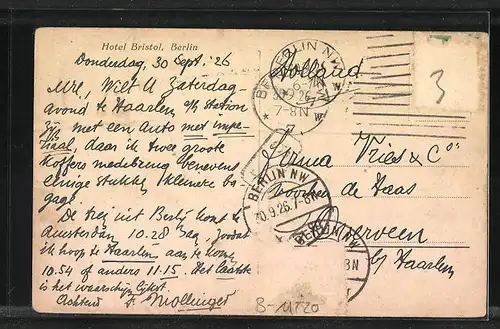 Hotel Bristol, Berlin
Donderdag, 30 Sept. '26
Mre, Wilt U Zaterdag-
avond te Haarlem a/h station
zijn met een Auto met impe-
riaal, daar ik twee groote
koffers medebreng benevens
eenige stukken kleinere ba-
gage.
De trein uit Berlijn komt te
Amsterdam 10.28 aan, zoodat
ik hoop te Haarlem aan te komen
10.54 of anders 11.15. Het laatste
is het waarschijnlijkst.
Achtend F. Mollinger
Holland
Firma Vries & Co
voorheen de Haas
Overveen
bij Haarlem
BERLIN NW
30.9.26. 7-8N
BERLIN NW
30.9.26. 7-8N
BERLIN NW
8N
3
B-11720